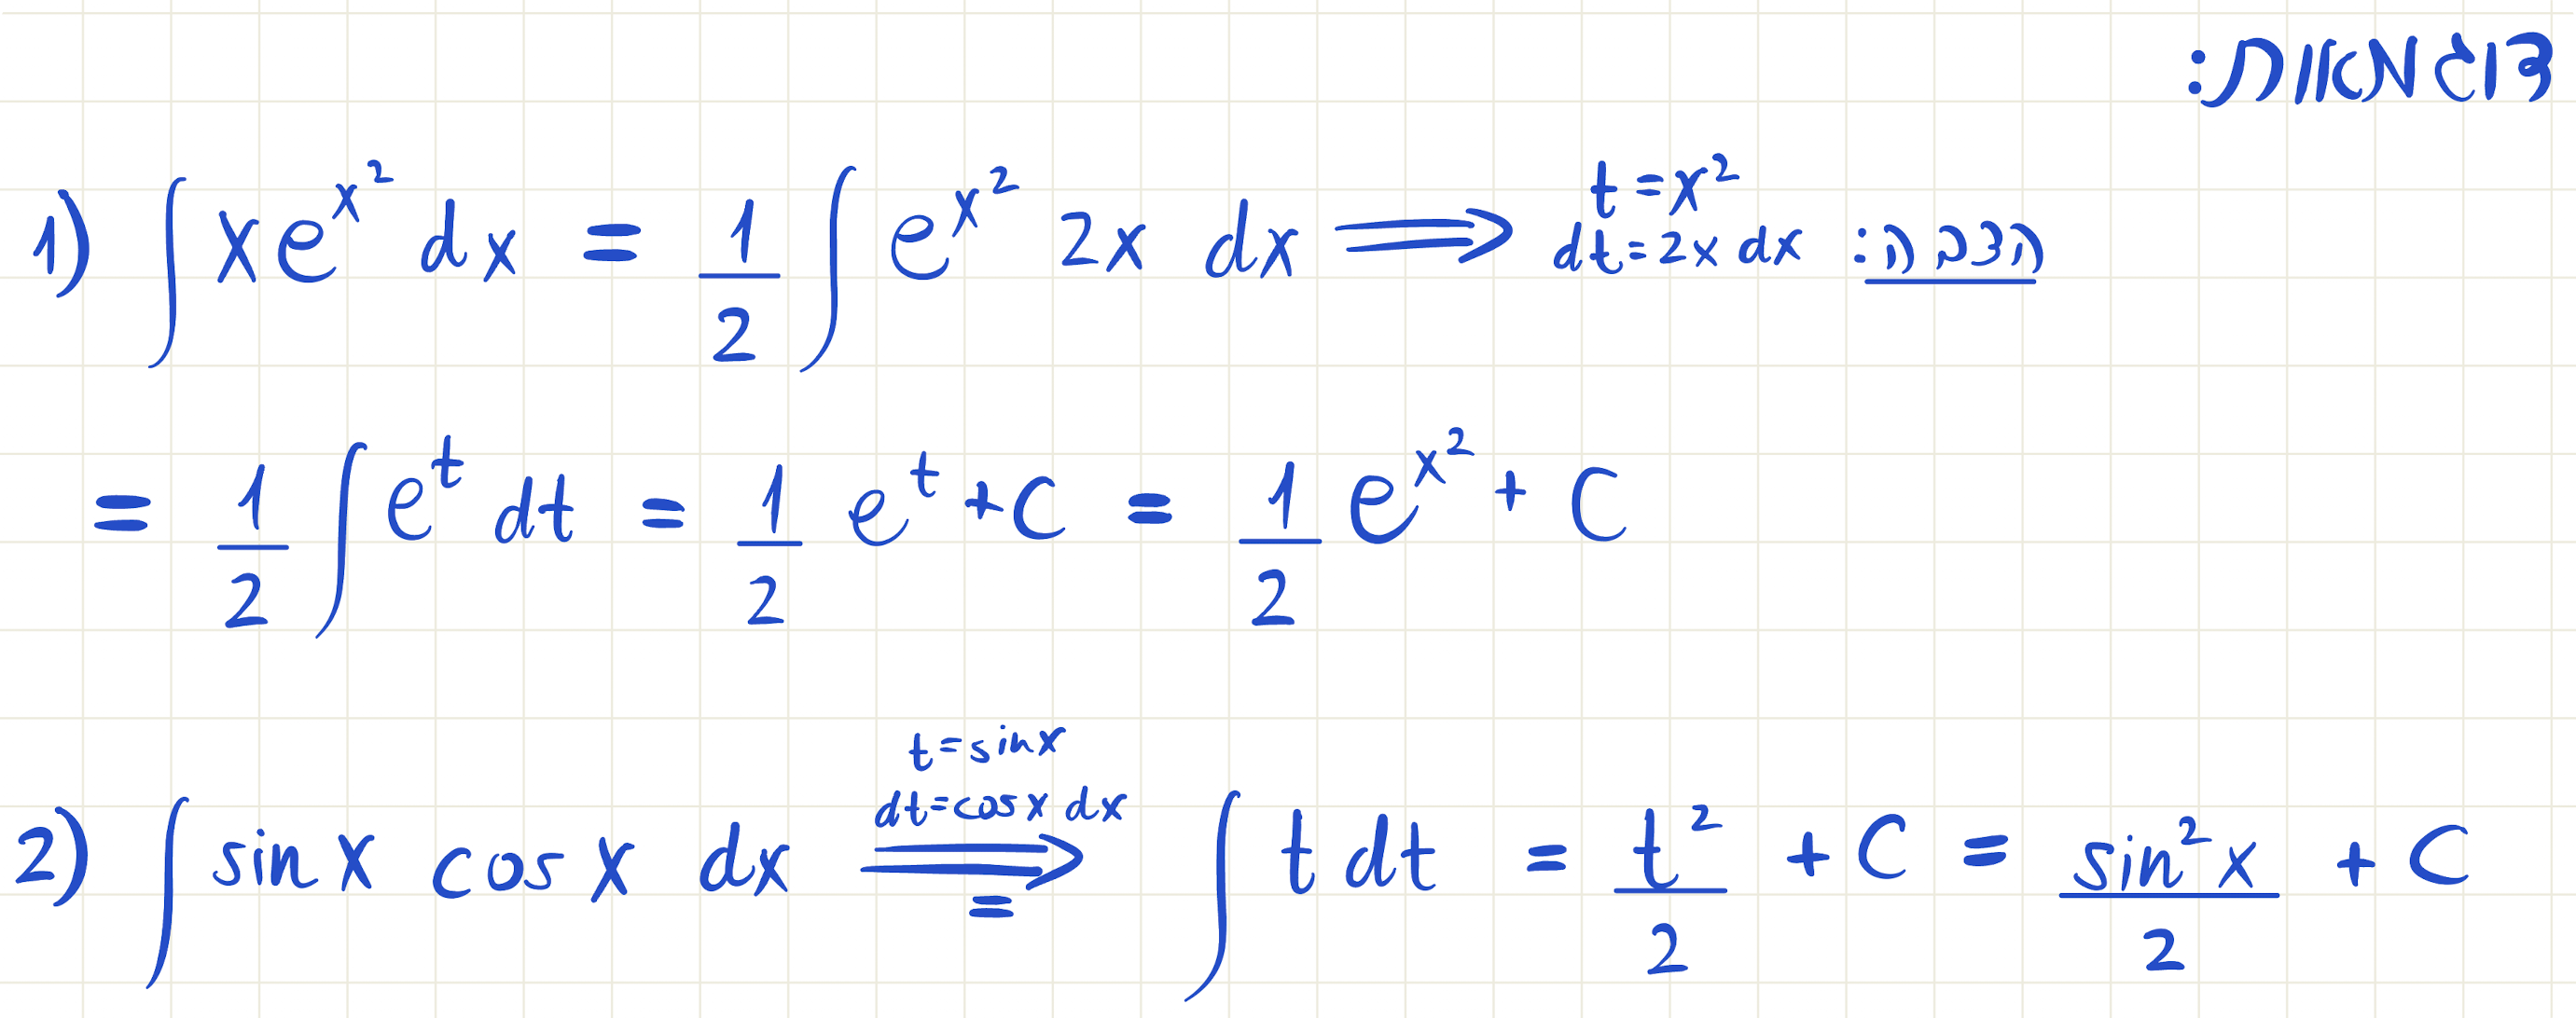 דוגמאות:
1) ∫ x e^{x^2} dx = \frac{1}{2} ∫ e^{x^2} 2x dx ⟹ הצבה: t = x^2 dt = 2x dx
= \frac{1}{2} ∫ e^t dt = \frac{1}{2} e^t + C = \frac{1}{2} e^{x^2} + C
t = sin x
dt = cos x dx
2) ∫ sin x cos x dx ⟹ = ∫ t dt = \frac{t^2}{2} + C = \frac{sin^2 x}{2} + C